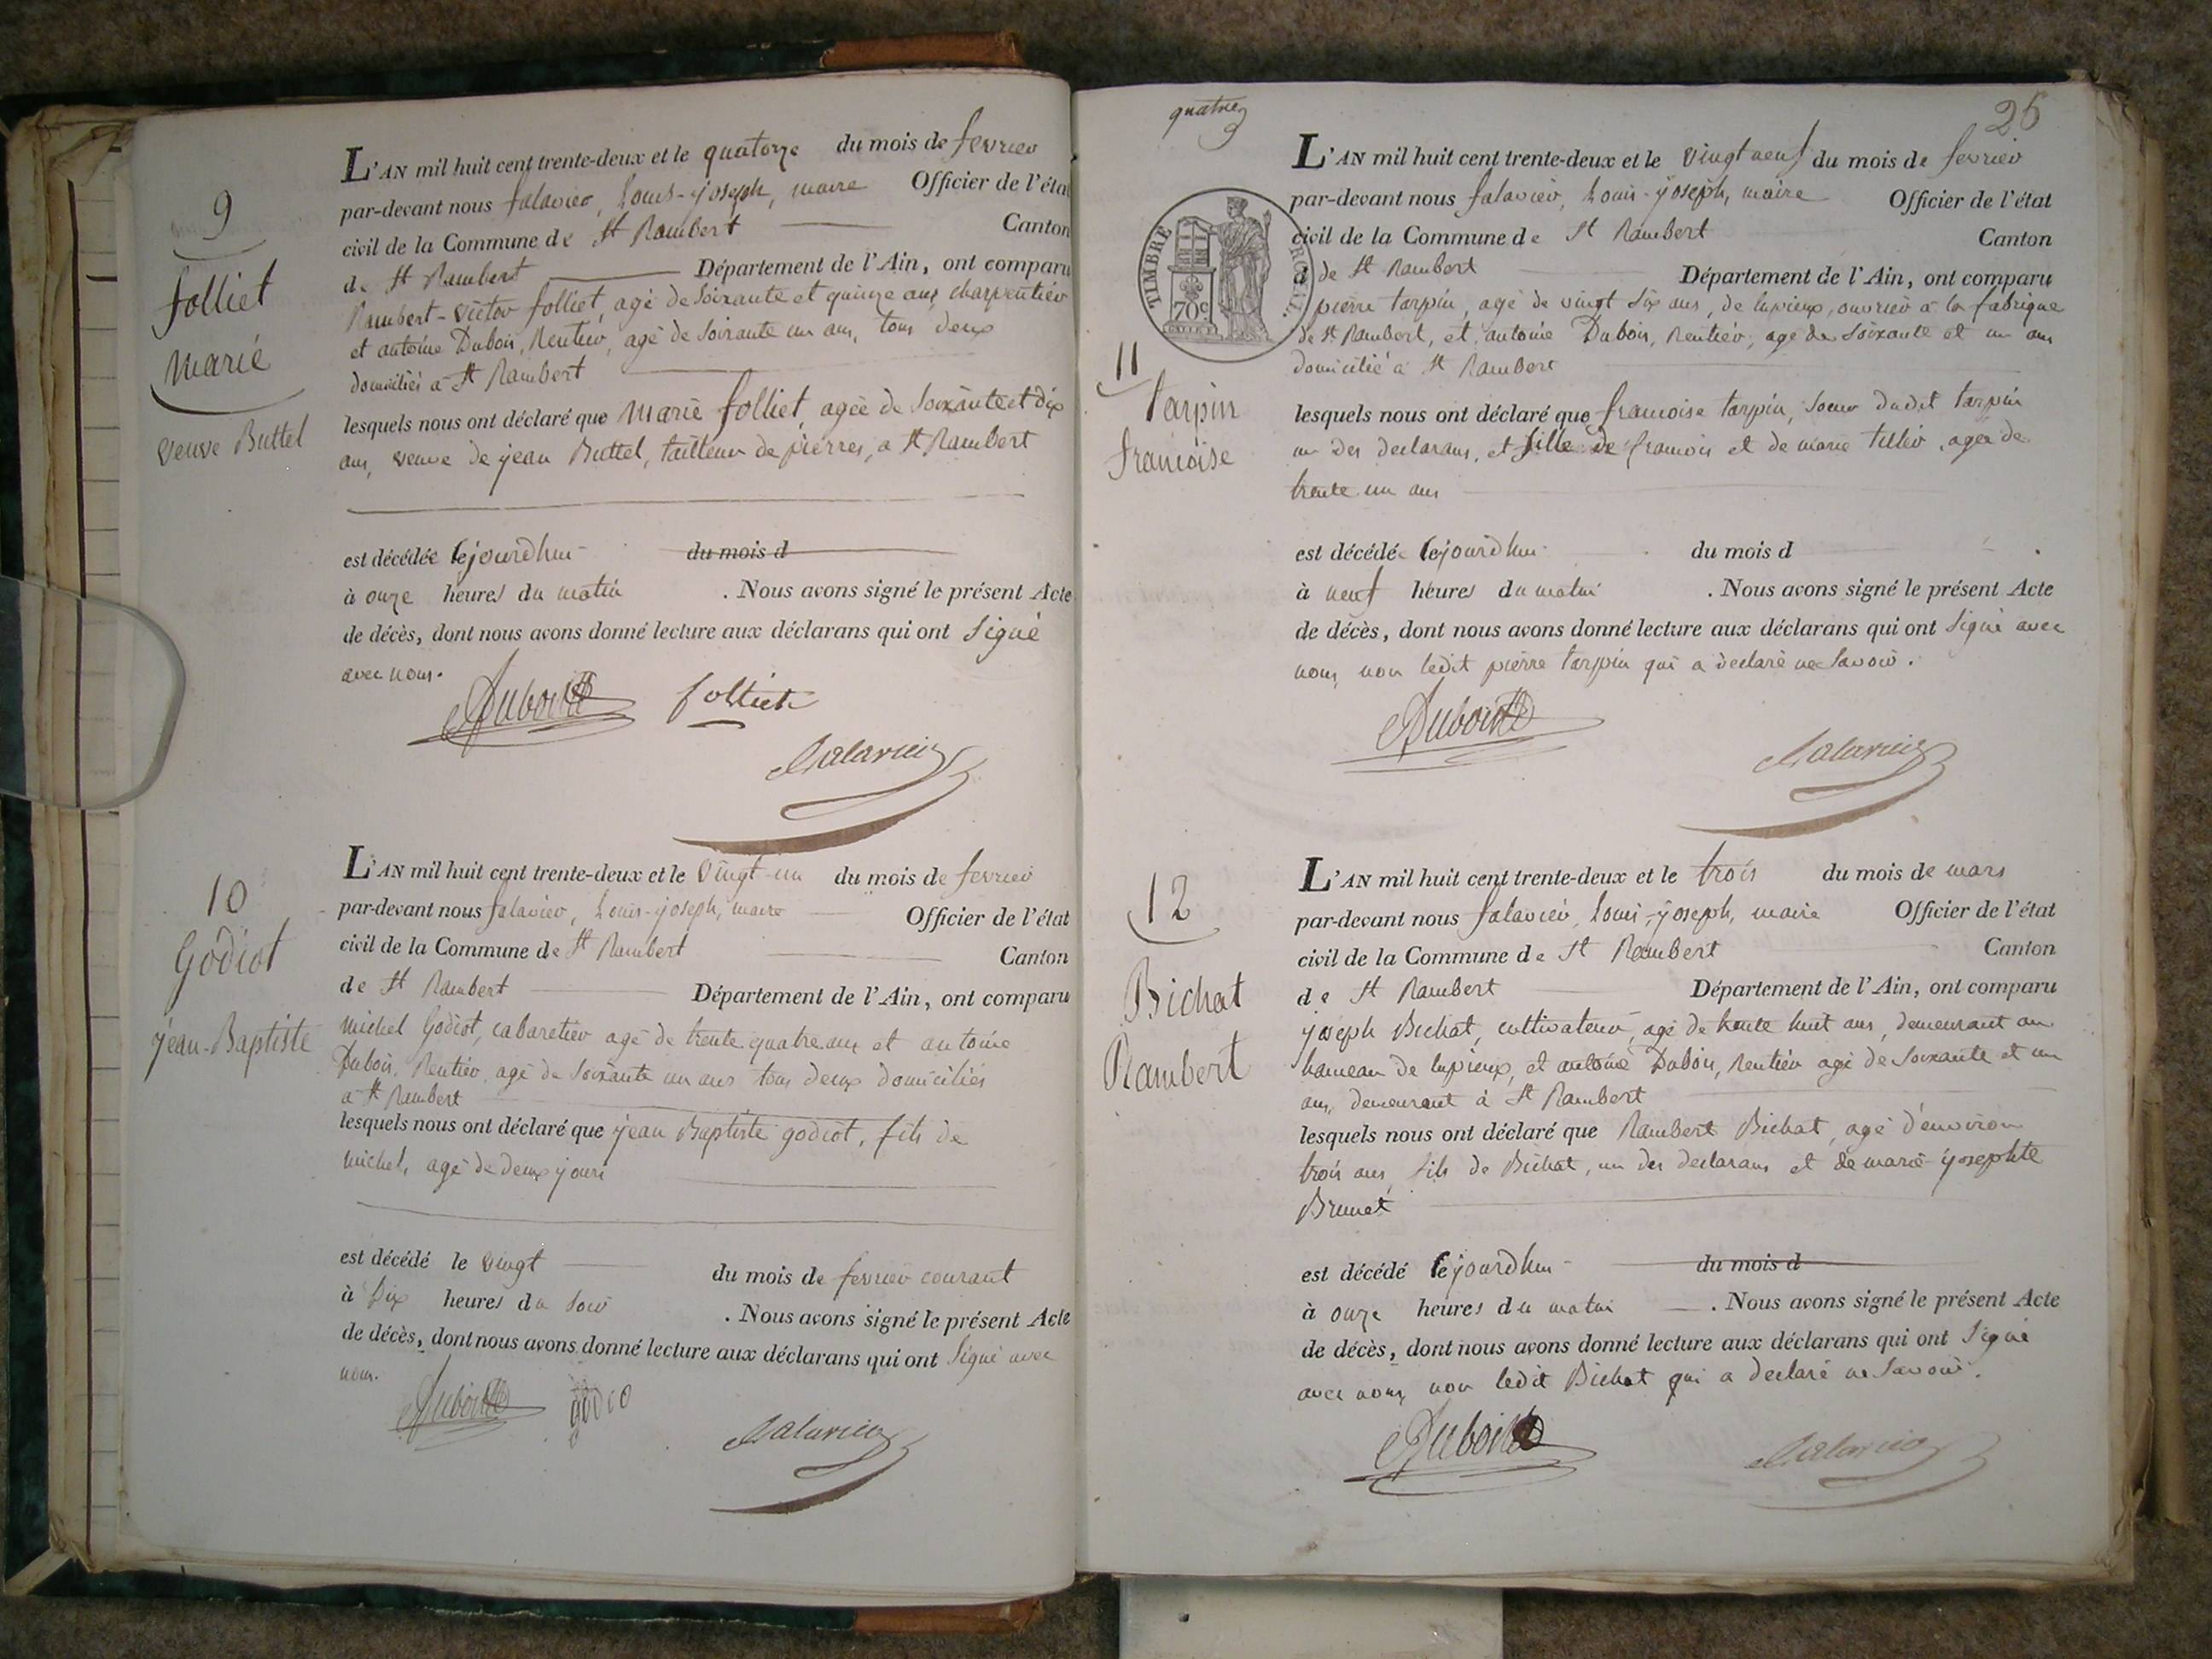 9
folliet
marie
veuve Buttel
L'AN mil huit cent trente-deux et le quatorze du mois de fevrier
par-devant nous falavier, Louis-joseph, maire Officier de l'état
civil de la Commune de St Rambert Canton
de St Rambert Département de l'Ain, ont comparu
Rambert-victor folliet, agé de soixante et quinze ans, charpentier
et antoine Dubois, Rentier, agé de soixante un ans, tous deux
domiciliés a St Rambert
lesquels nous ont déclaré que Marie folliet, agée de soixante et dix
ans, veuve de jean Buttel, tailleur de pierres, a St Rambert
est décédée cejourdhui du mois d
à onze heures du matin . Nous avons signé le présent Acte
de décès, dont nous avons donné lecture aux déclarans qui ont signé
avec nous.
Dubois folliet
falavier
10
Godiot
jean-Baptiste
L'AN mil huit cent trente-deux et le vingt-un du mois de fevrier
par-devant nous falavier, Louis-joseph, maire Officier de l'état
civil de la Commune de St Rambert Canton
de St Rambert Département de l'Ain, ont comparu
Michel Godiot, cabaretier agé de trente quatre ans et antoine
Dubois, Rentier, agé de soixante un ans tous deux domiciliés
a St Rambert
lesquels nous ont déclaré que jean Baptiste godiot, fils de
michel, agé de deux jours
est décédé le vingt du mois de fevrier courant
à six heures du soir . Nous avons signé le présent Acte
de décès, dont nous avons donné lecture aux déclarans qui ont signé avec
nous.
Dubois godio
falavier
quatre
26
TIMBRE ROYAL
70c
11
Tarpin
francoise
L'AN mil huit cent trente-deux et le vingt neuf du mois de fevrier
par-devant nous falavier, Louis-joseph, maire Officier de l'état
civil de la Commune de St Rambert Canton
d de St Rambert Département de l'Ain, ont comparu
pierre tarpin, agé de vingt six ans, de lupieux, ouvrier a la fabrique
de St Rambert, et antoine Dubois, Rentier, agé de soixante et un ans
domicilié a St Rambert
lesquels nous ont déclaré que francoise tarpin, soeur dudit tarpin
un des declarans, et fille de francois et de marie , agée de
trente un ans
est décédée cejourdhui du mois d
à neuf heures du matin . Nous avons signé le présent Acte
de décès, dont nous avons donné lecture aux déclarans qui ont signé avec
nous, non ledit pierre tarpin qui a declaré ne savoir.
Dubois
falavier
12
Bichat
Rambert
L'AN mil huit cent trente-deux et le trois du mois de mars
par-devant nous falavier, Louis-joseph, maire Officier de l'état
civil de la Commune de St Rambert Canton
de St Rambert Département de l'Ain, ont comparu
joseph Bichat, cultivateur, agé de trente huit ans, demeurant au
hameau de lupieux, et antoine Dubois, Rentier agé de soixante et un
ans, demeurant à St Rambert
lesquels nous ont déclaré que Rambert Bichat, agé d'environ
trois ans, fils de Bichat, un des declarans et de marie-josephte
Brunet
est décédé cejourdhui du mois d
à onze heures du matin . Nous avons signé le présent Acte
de décès, dont nous avons donné lecture aux déclarans qui ont signé
avec nous, non ledit Bichat qui a declaré ne savoir.
Dubois
falavier